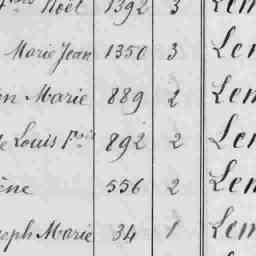 Noël 1392 3 Len
Marie Jean 1350 3 Len
Marie 889 2 Len
Louis 892 2 Len
ène 556 2 Len
oseph Marie 34 1 Lem